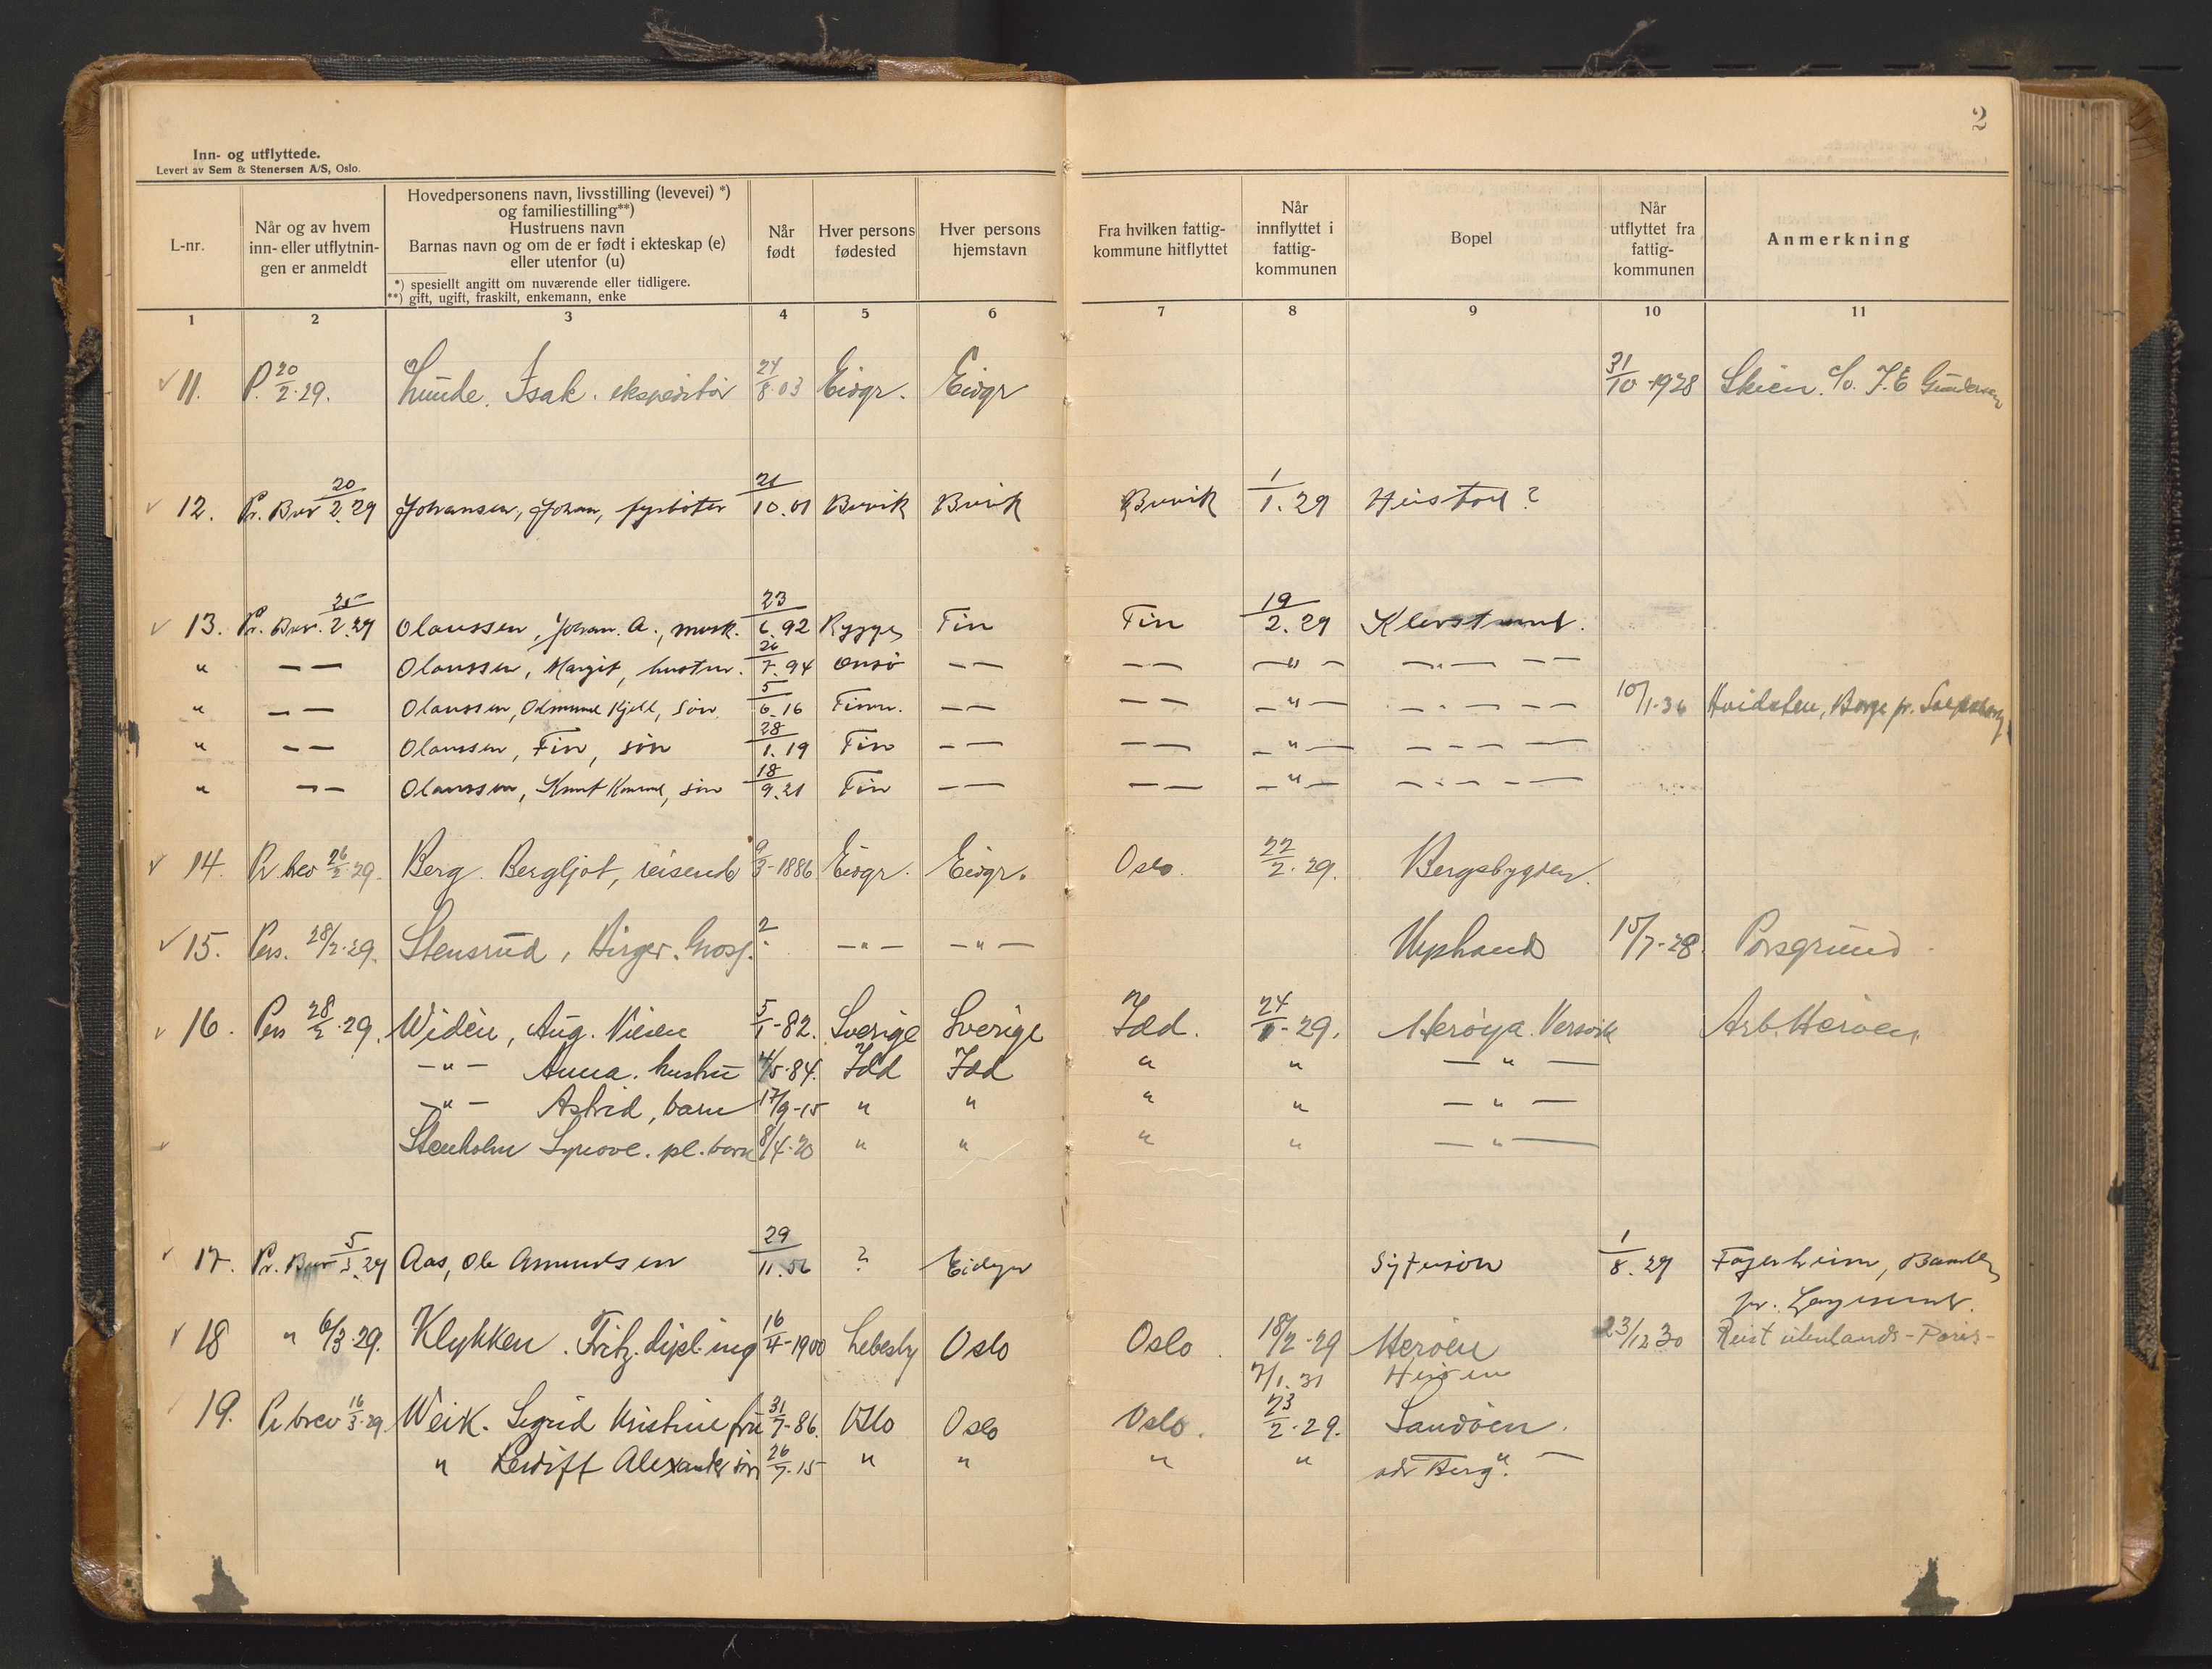 2
Inn- og utflyttede.
Levert av Sem & Stenersen A/S, Oslo.
L-nr.
Når og av hvem
inn- eller utflytnin-
gen er anmeldt
Hovedpersonens navn, livsstilling (levevei) *)
og familiestilling**)
Hustruens navn
Barnas navn og om de er født i ekteskap (e)
eller utenfor (u)
*) spesiellt angitt om nuværende eller tidligere.
**) gift, ugift, fraskilt, enkemann, enke
Når
født
Hver persons
fødested
Hver persons
hjemstavn
Fra hvilken fattig-
kommune hitflyttet
Når
innflyttet i
fattig-
kommunen
Bopel
Når
utflyttet fra
fattig-
kommunen
Anmerkning
1 2 3 4 5 6 7 8 9 10 11
11. P. 20/2.29. Lunde. Isak. ekspeditør 24/8.03 Eidgr. Eidgr 31/10-1928 Skien. c/o. J. E Gundersen
12. Pr. Brev 20/2.29 Johansen, Johan, fyrbøter 21/10.01 Buvik 1/1.29
13. Pr. Brev. 25/2.29 Olaussen, Johan. A., 23/6.92 Rygge Tin Tin 19/2.29
" — — Olaussen, Margit, hustru. 26/7.94 Onsø — — — — —"— —.— — —
" — — Olaussen, Kjell, søn. 5/6.16 Tinn. — — — — —"— —.— — — 10/1-36 Hvidsten, Borge pr. Sarpsborg
" — — Olaussen, Finn, søn 28/1.19 Tin — — — — —"— — — — —
" — — Olaussen, Knut Konrad, søn 18/9.21 Tin — — — — —"— —.— — —
14. Pr brev 26/2.29. Berg. Bergljot, reisende 9/3-1886 Eidgr. Eidgr. Oslo. 22/2.29. Bergsbygden.
15. Pers. 28/2.29. Stensrud, Birger. ? —"— —"— 15/7-28. Porsgrund
16. Pers 28/2.29. Widèn, Aug. 5/1-82. Sverige Sverige Idd. 24/1-29. Herøya. Versvik Arb. Herøen.
—"— Anna. hustru 4/5-84. Idd Idd " " —"—
—"— Astrid, barn 17/9-15 " " " " —"—
Stenholm Synøve. pl. barn 8/4-20 " " " " —"—
17. Pr. Brev 5/3.29 Aas, Ole Amundsen 29/11.56 ? 1/8.29 Fagerheim, Bamble
pr. Langesund.
18 " 6/3.29. Klykken. Fritz. dipl. ing 16/4-1900 Lebesby Oslo Oslo. 18/2-29 Herøen 23/12 30 Reist utenlands - Paris -
7/1.31 Herøen
19. Pr brev 16/3.29 Weik. Sigrid Kristine fru 31/7-86. Oslo Oslo Oslo. 23/2.29. Sandøen.
" Alexander søn 26/7.15 " " " " adr Berg". —